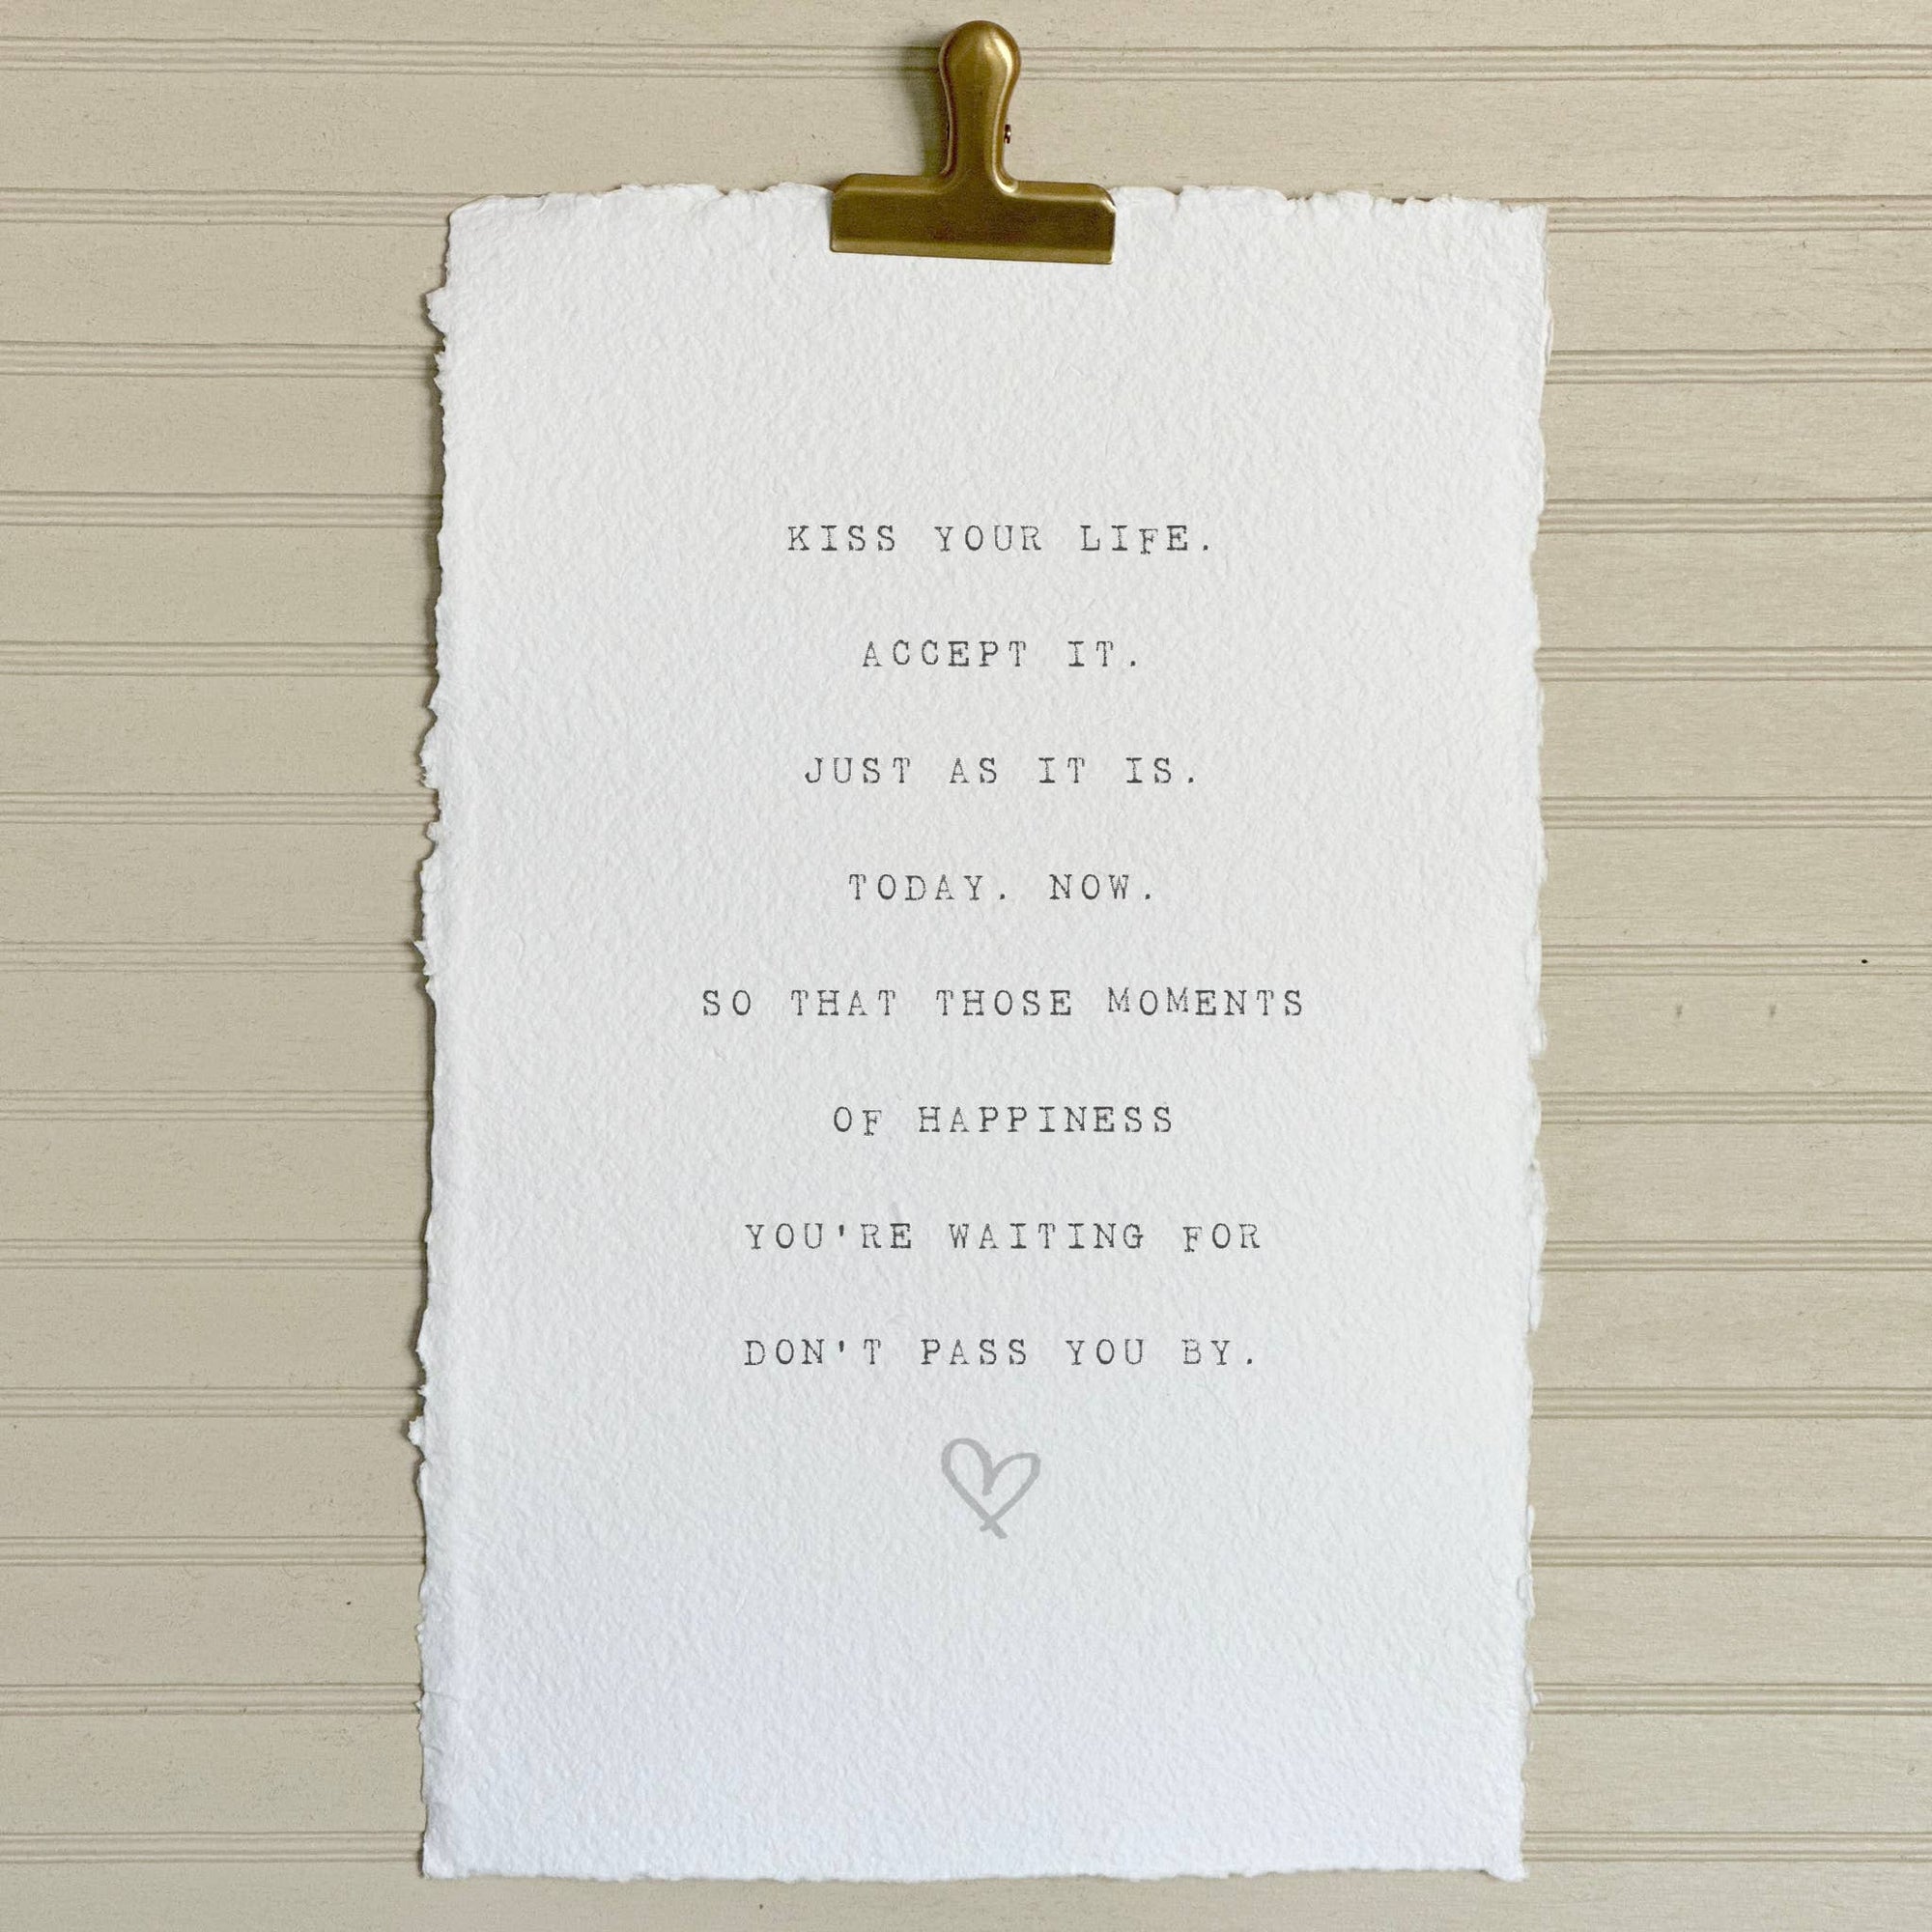 KISS YOUR LIFE.
ACCEPT IT.
JUST AS IT IS.
TODAY. NOW.
SO THAT THOSE MOMENTS
OF HAPPINESS
YOU'RE WAITING FOR
DON'T PASS YOU BY.